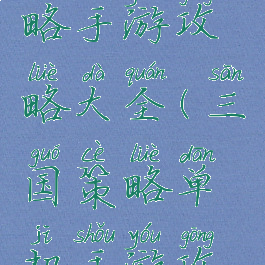 略手游攻
lüè dà quán sān
略大全(三
guó cè lüè dān
国策略单
jī shǒu yóu gōng
机手游攻